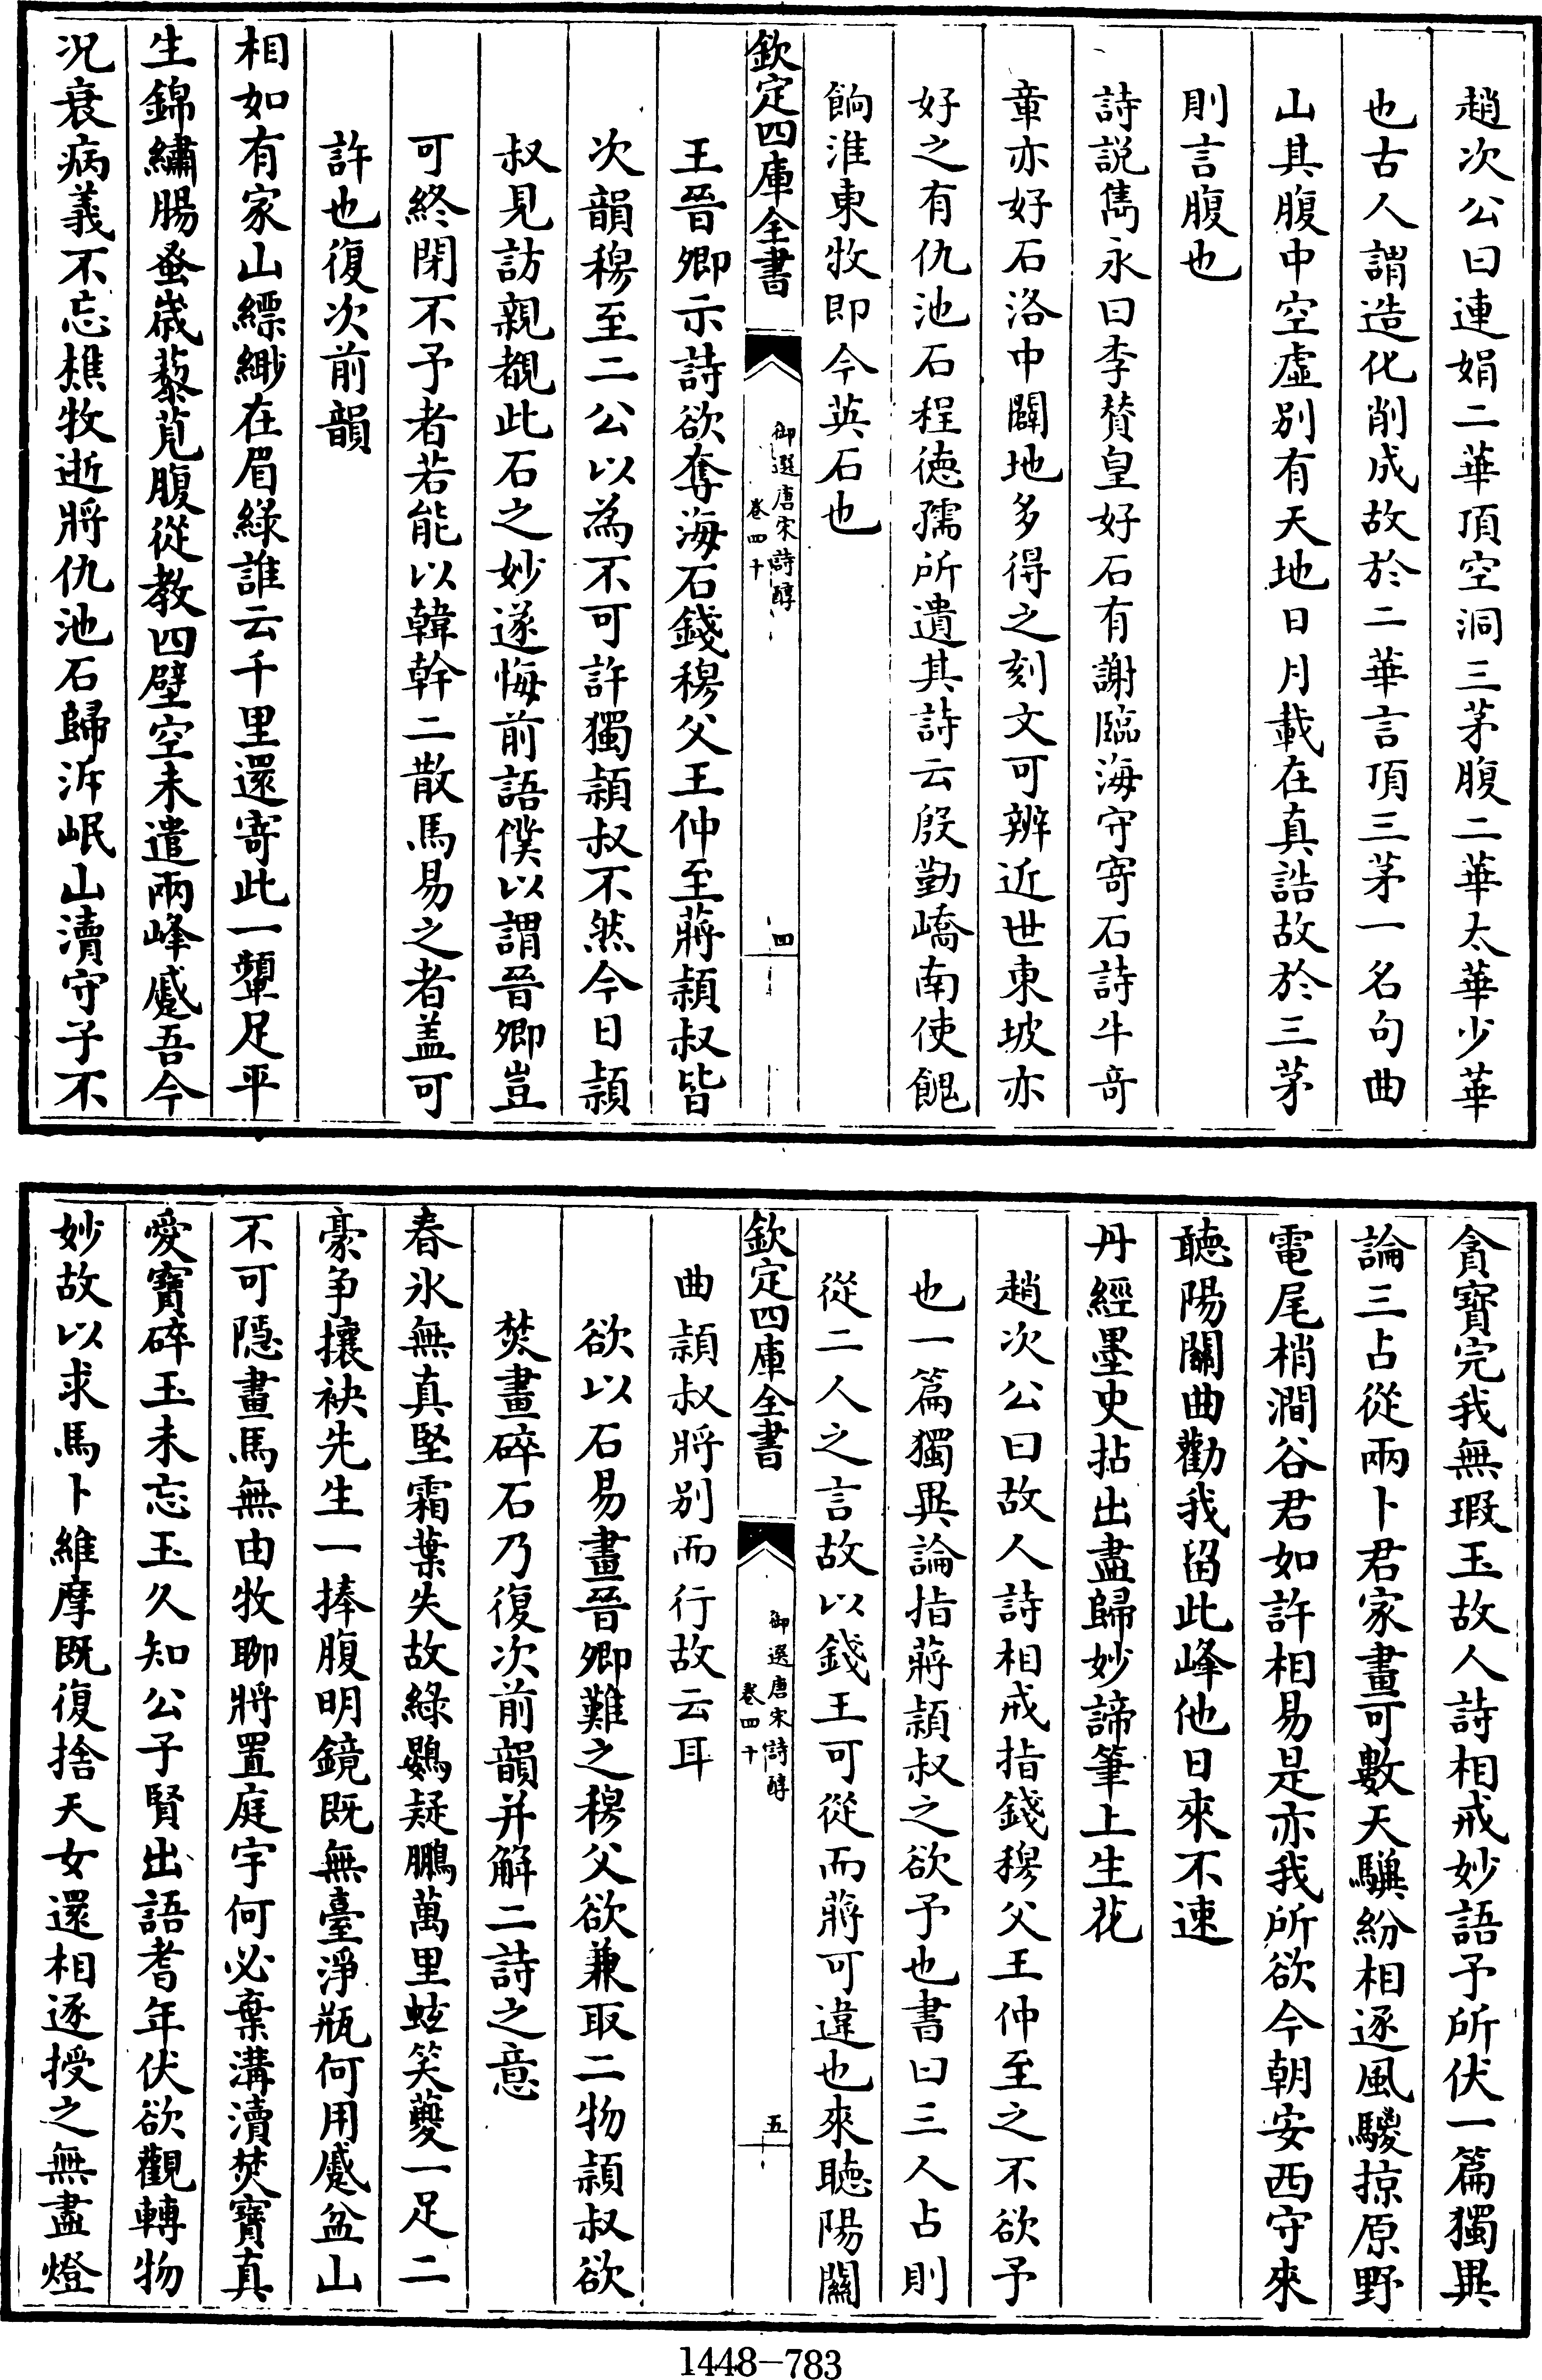 趙次公曰連娟二華頂空洞三茅腹二華太華少華
也古人謂造化削成故於二華言頂三茅一名句曲
山其腹中空虛別有天地日月載在真誥故於三茅
則言腹也
詩説雋永曰李賛皇好石有謝臨海守寄石詩牛竒
章亦好石洛中闢地多得之刻文可辨近世東坡亦
好之有仇池石程徳孺所遺其詩云殷勤嶠南使餽
餉淮東牧即今英石也
欽定四庫全書
御選唐宋詩醇
卷四十
四
王晉卿示詩欲奪海石錢穆父王仲至蔣頴叔皆
次韻穆至二公以為不可許獨頴叔不然今日頴
叔見訪親覩此石之妙遂悔前語僕以謂晉卿豈
可終閉不予者若能以韓幹二散馬易之者盖可
許也復次前韻
相如有家山縹緲在眉綠誰云千里還寄此一顰足平
生錦繡腸蚤嵗藜莧腹從教四壁空未遣兩峰蹙吾今
况衰病義不忘樵牧逝將仇池石歸泝岷山瀆守子不
貪寳完我無瑕玉故人詩相戒妙語予所伏一篇獨異
論三占從兩卜君家畫可數天驥紛相逐風騣掠原野
電尾梢澗谷君如許相易是亦我所欲今朝安西守來
聽陽關曲勸我留此峰他日來不速
丹經墨史拈出盡歸妙諦筆上生花
趙次公曰故人詩相戒指錢穆父王仲至之不欲予
也一篇獨異論指蔣頴叔之欲予也書曰三人占則
從二人之言故以錢王可從而蔣可違也來聽陽關
欽定四庫全書
御選唐宋詩醇
卷四十
五
曲頴叔將別而行故云耳
欲以石易畫晉卿難之穆父欲兼取二物頴叔欲
焚畫碎石乃復次前韻并解二詩之意
春氷無真堅霜葉失故綠鷃疑鵬萬里蚿笑夔一足二
豪争攘袂先生一捧腹明鏡既無臺淨瓶何用蹙盆山
不可隠畫馬無由牧聊將置庭宇何必棄溝瀆焚寳真
愛寳碎玉未忘玉久知公子賢出語耆年伏欲觀轉物
妙故以求馬卜維摩既復捨天女還相逐授之無盡燈
1448-783